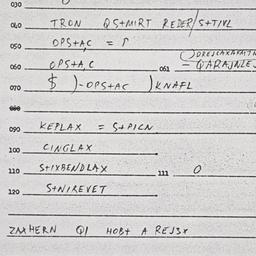 030
040 TRON QS+MIRT REDER/S+TIVL
050 OPS+A,C = r
060 OPS+A,C 061 — QARAJNLE
070 $ )-OPS+AC )KNAFL
080
090 KEPLAX = S+PICN
100 CINGLAX
110 S+IXBENDLAX 111 O
120 S+NIREVET
ZAXHERN QI HOB+ A REJ3X